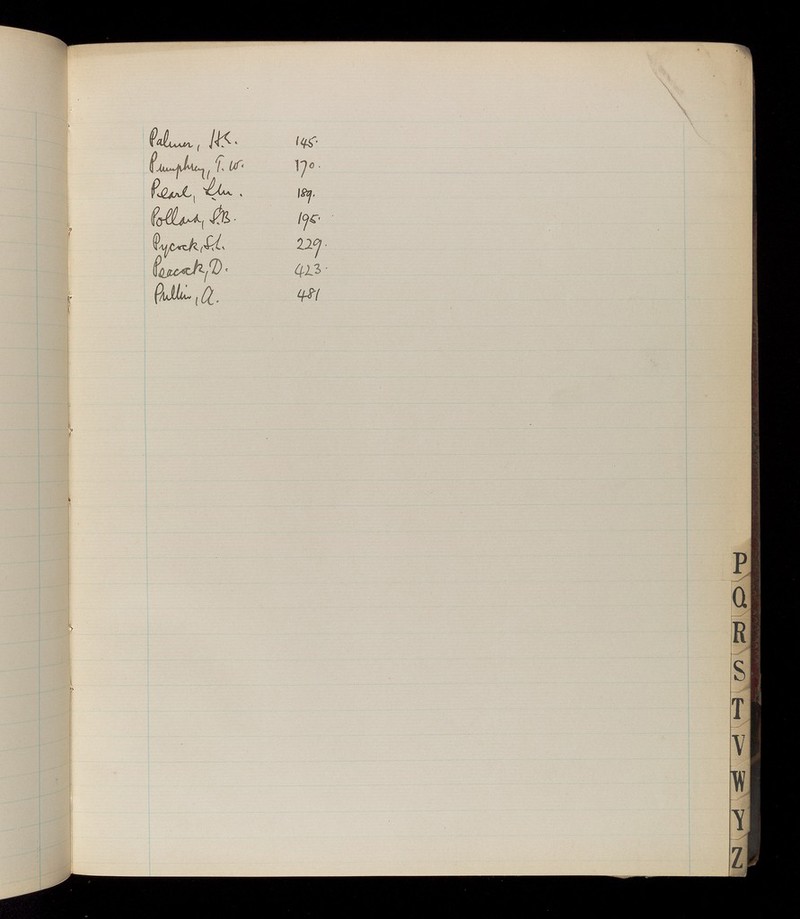 Palmer, H.C. 145.
Pumphrey, T.W. 170.
Pearl, 189.
Pollard, S.B. 195.
Pycock, S.L. 229.
Peacock, D. 423.
Pullin, A. 481
P
Q
R
S
T
V
W
Y
Z